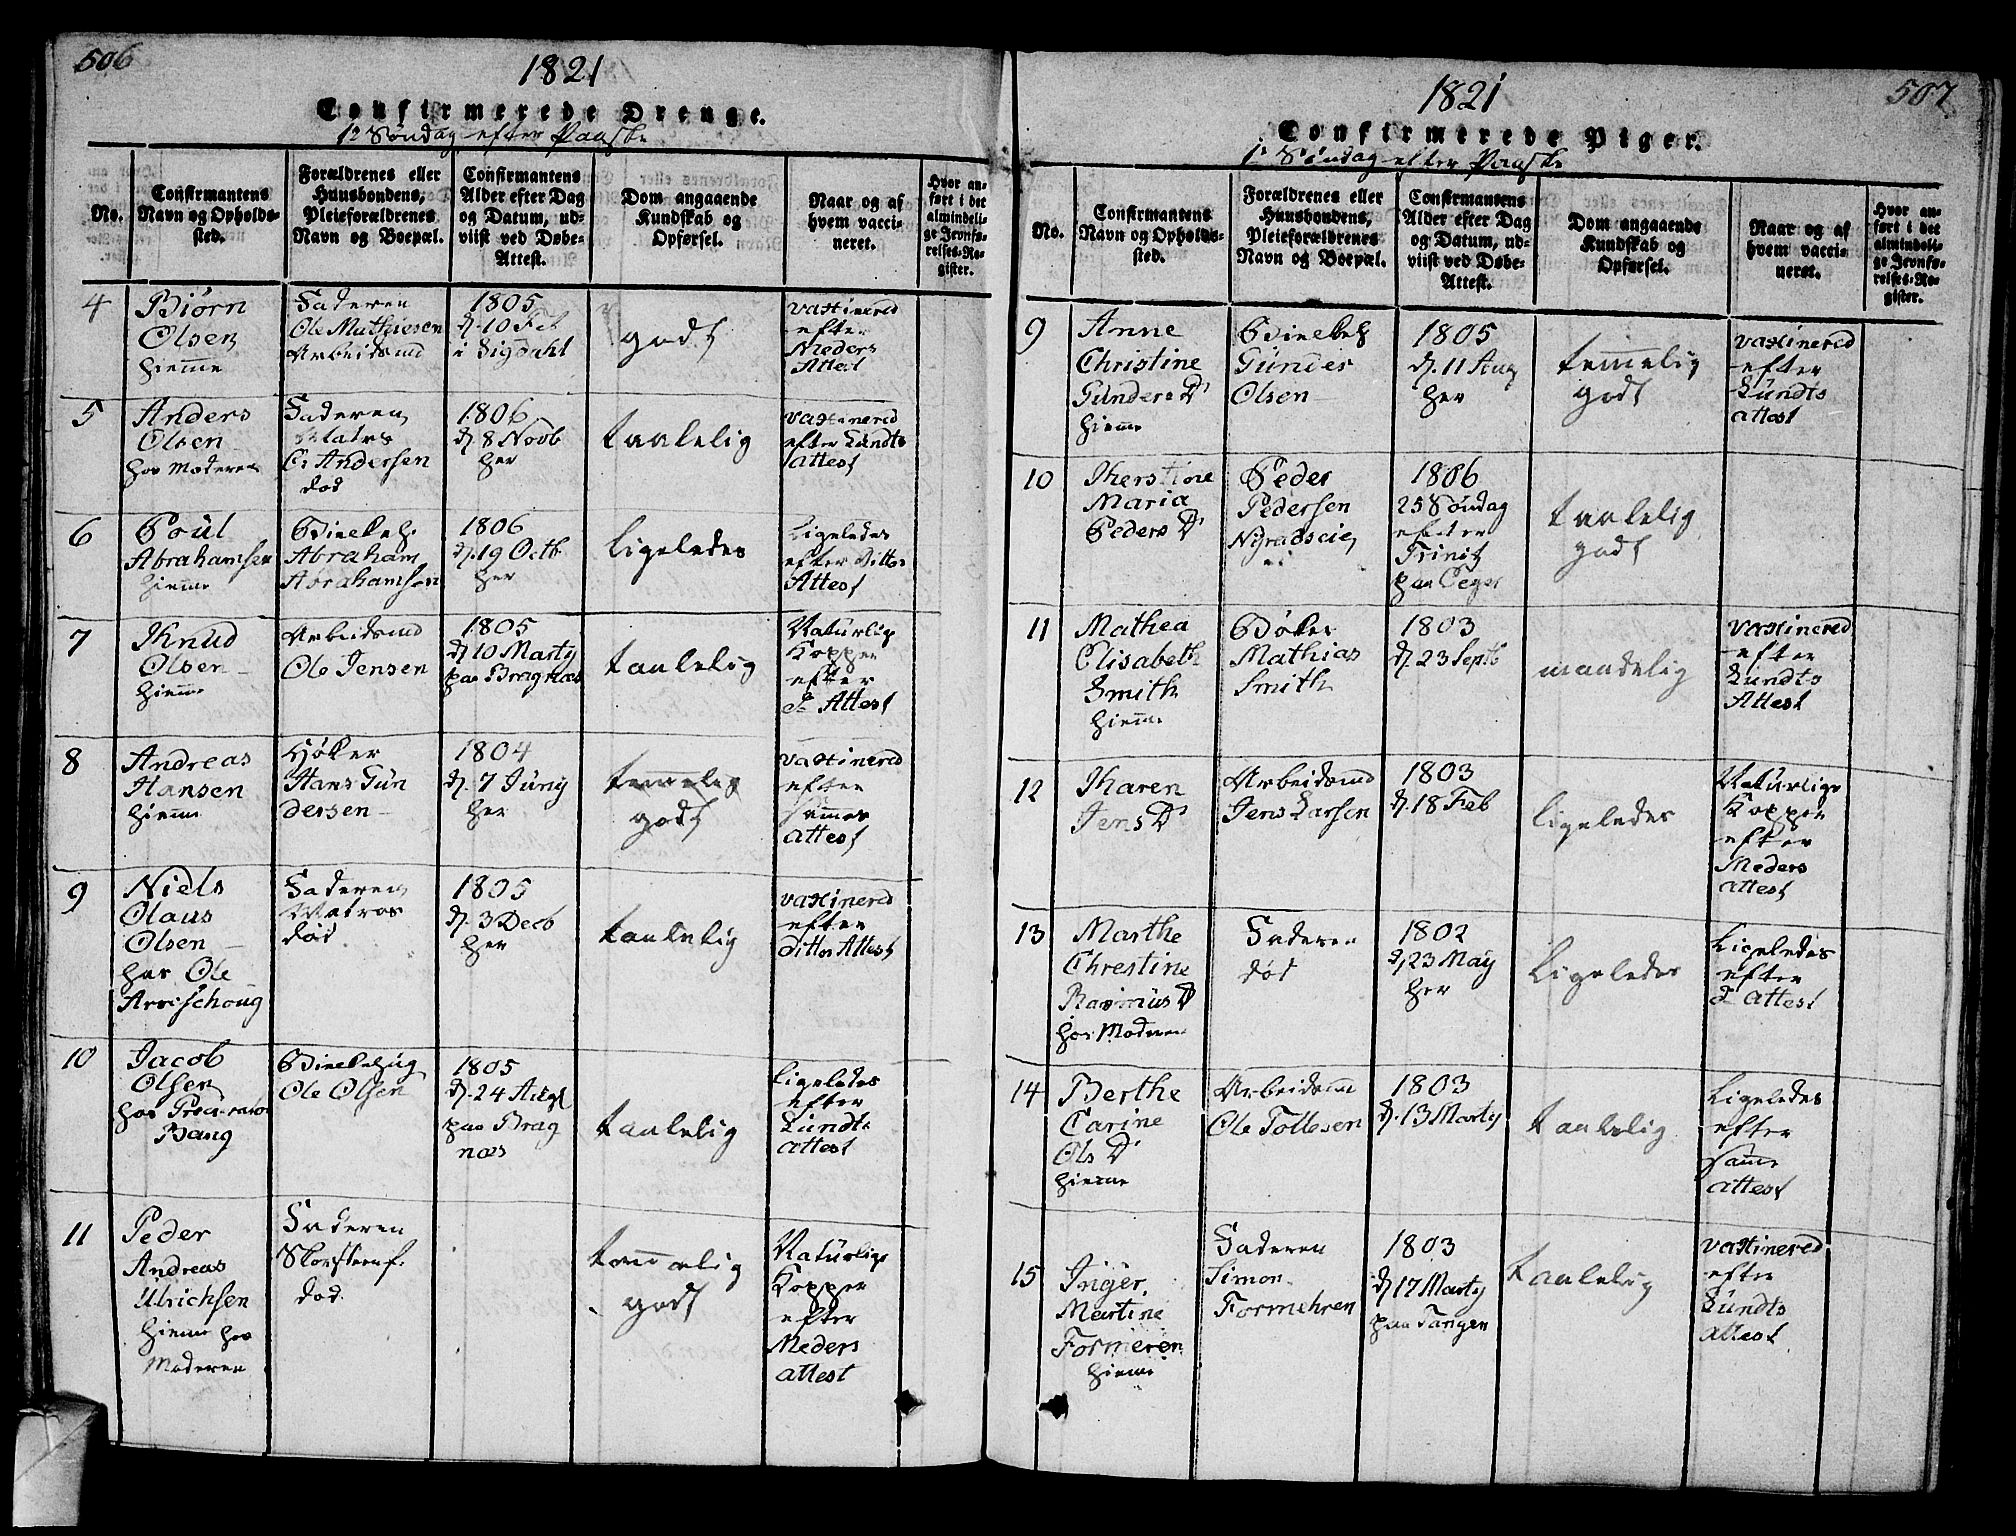 506
1821
Confirmerede Drenge.
1e Søndag efter Paaske
No.
Confirmantens
Navn og Opholds-
sted.
Forældrenes eller
Huusbondens,
Pleieforældrenes
Navn og Boepæl.
Confirmantens
Alder efter Dag
og Datum, ud-
viist ved Døbe-
Attest.
Dom angaaende
Kundskab og
Opførsel.
Naar og af
hvem vacci-
neret.
Hvor an-
ført i det
almindeli-
ge Jevnfø-
relses-Re-
gister.
4
Biørn
Olsen
hiemme
Faderen
Ole Mathiesen
Arbeidsmd
1805
d. 10 Feb
i Sigdahl
godt
vaxinered
efter
Meders
Attest
5
Anders
Olsen
hos Moderen
Faderen
Matrs
Andersen
død
1806
d. 8 Novb
her
taalelig
vaxinered
efter Lundts
attest
6
Poul
Abrahamsen
hiemme
Abraham
Abrahamsen
1806
d. 19 Octb
her
ligeledes
Ligeledes
efter Ditto
Attest
7
Knud
Olsen
hiemme
Arbeidsmd
Ole Jensen
1805
d. 10 Marty
paa Bragnæs
taalelig
Naturlig
Kopper
efter
Attest
8
Andreas
Hansen
hiemme
Høker
Hans Gun
dersen
1804
d. 7 Juny
her
temelig
godt
vaxinered
efter
sammes
attest
9
Niels
Olaus
Olsen
hos Ole
Faderen
Matros
død
1805
d. 3 Decb
her
taalelig
vaxinered
efter
ditto Attest
10
Jacob
Olsen
hos Procurator
Bang
Ole Olsen
1805
d. 24 Augt
paa Brag
næs
taalelig
ligeledes
efter
Lundts
attest
11
Peder
Andreas
Ulrichsen
hiemme hos
Moderen
Faderen
død
temmelig
godt
Naturlige
Kopper
efter
Meders
attest
1821
507
Confirmerede Piger.
1e Søndag efter Paaske
No.
Confirmantens
Navn og Opholds-
sted.
Forældrenes eller
Huusbondens,
Pleieforældrenes
Navn og Boepæl.
Confirmantens
Alder efter Dag
og Datum, ud-
viist ved Døbe-
Attest.
Dom angaaende
Kundskab og
Opførsel.
Naar og af
hvem vacci-
neret.
Hvor an-
ført i det
almindeli-
ge Jevnfø-
relses-Re-
gister.
9
Anne
Christine
Gunders D
hiemme
Gunder
Olsen
1805
d. 11 Aug
her
temmelig
godt
vaxinered
efter
Lundts
attest
10
Kerstine
Maria
Peders D
Peder
Pedersen
1806
25 Søndag
efter
Trinit
paa
taalelig
godt
11
Mathea
Elisabeth
Smith
hiemme
Bøker
Mathias
Smith
1803
d. 23 Septb
maadelig
vaxinered
efter
Lundts
Attest
12
Karen
Jens D
Arbeidsmd
Jens Larsen
1803
d. 18 Feb
ligeledes
Naturlige
Kopper
efter
Meders
attest
13
Marthe
Chrestine
Rasmus D
hos Moderen
Faderen
død
1802
d. 23 May
her
Ligeledes
Ligeledes
efter
attest
14
Berthe
Carine
Ols D
hiemme
Arbeidsm
Ole Tollesen
1803
d. 13 Marty
taalelig
Ligeledes
efter
samme
attest
15
Inger
Martine
Formeren
hiemme
Faderen
Simon
Formehren
1803
d. 17 Marty
paa Tangen
taalelig
vaxinered
efter
Lundts
attest